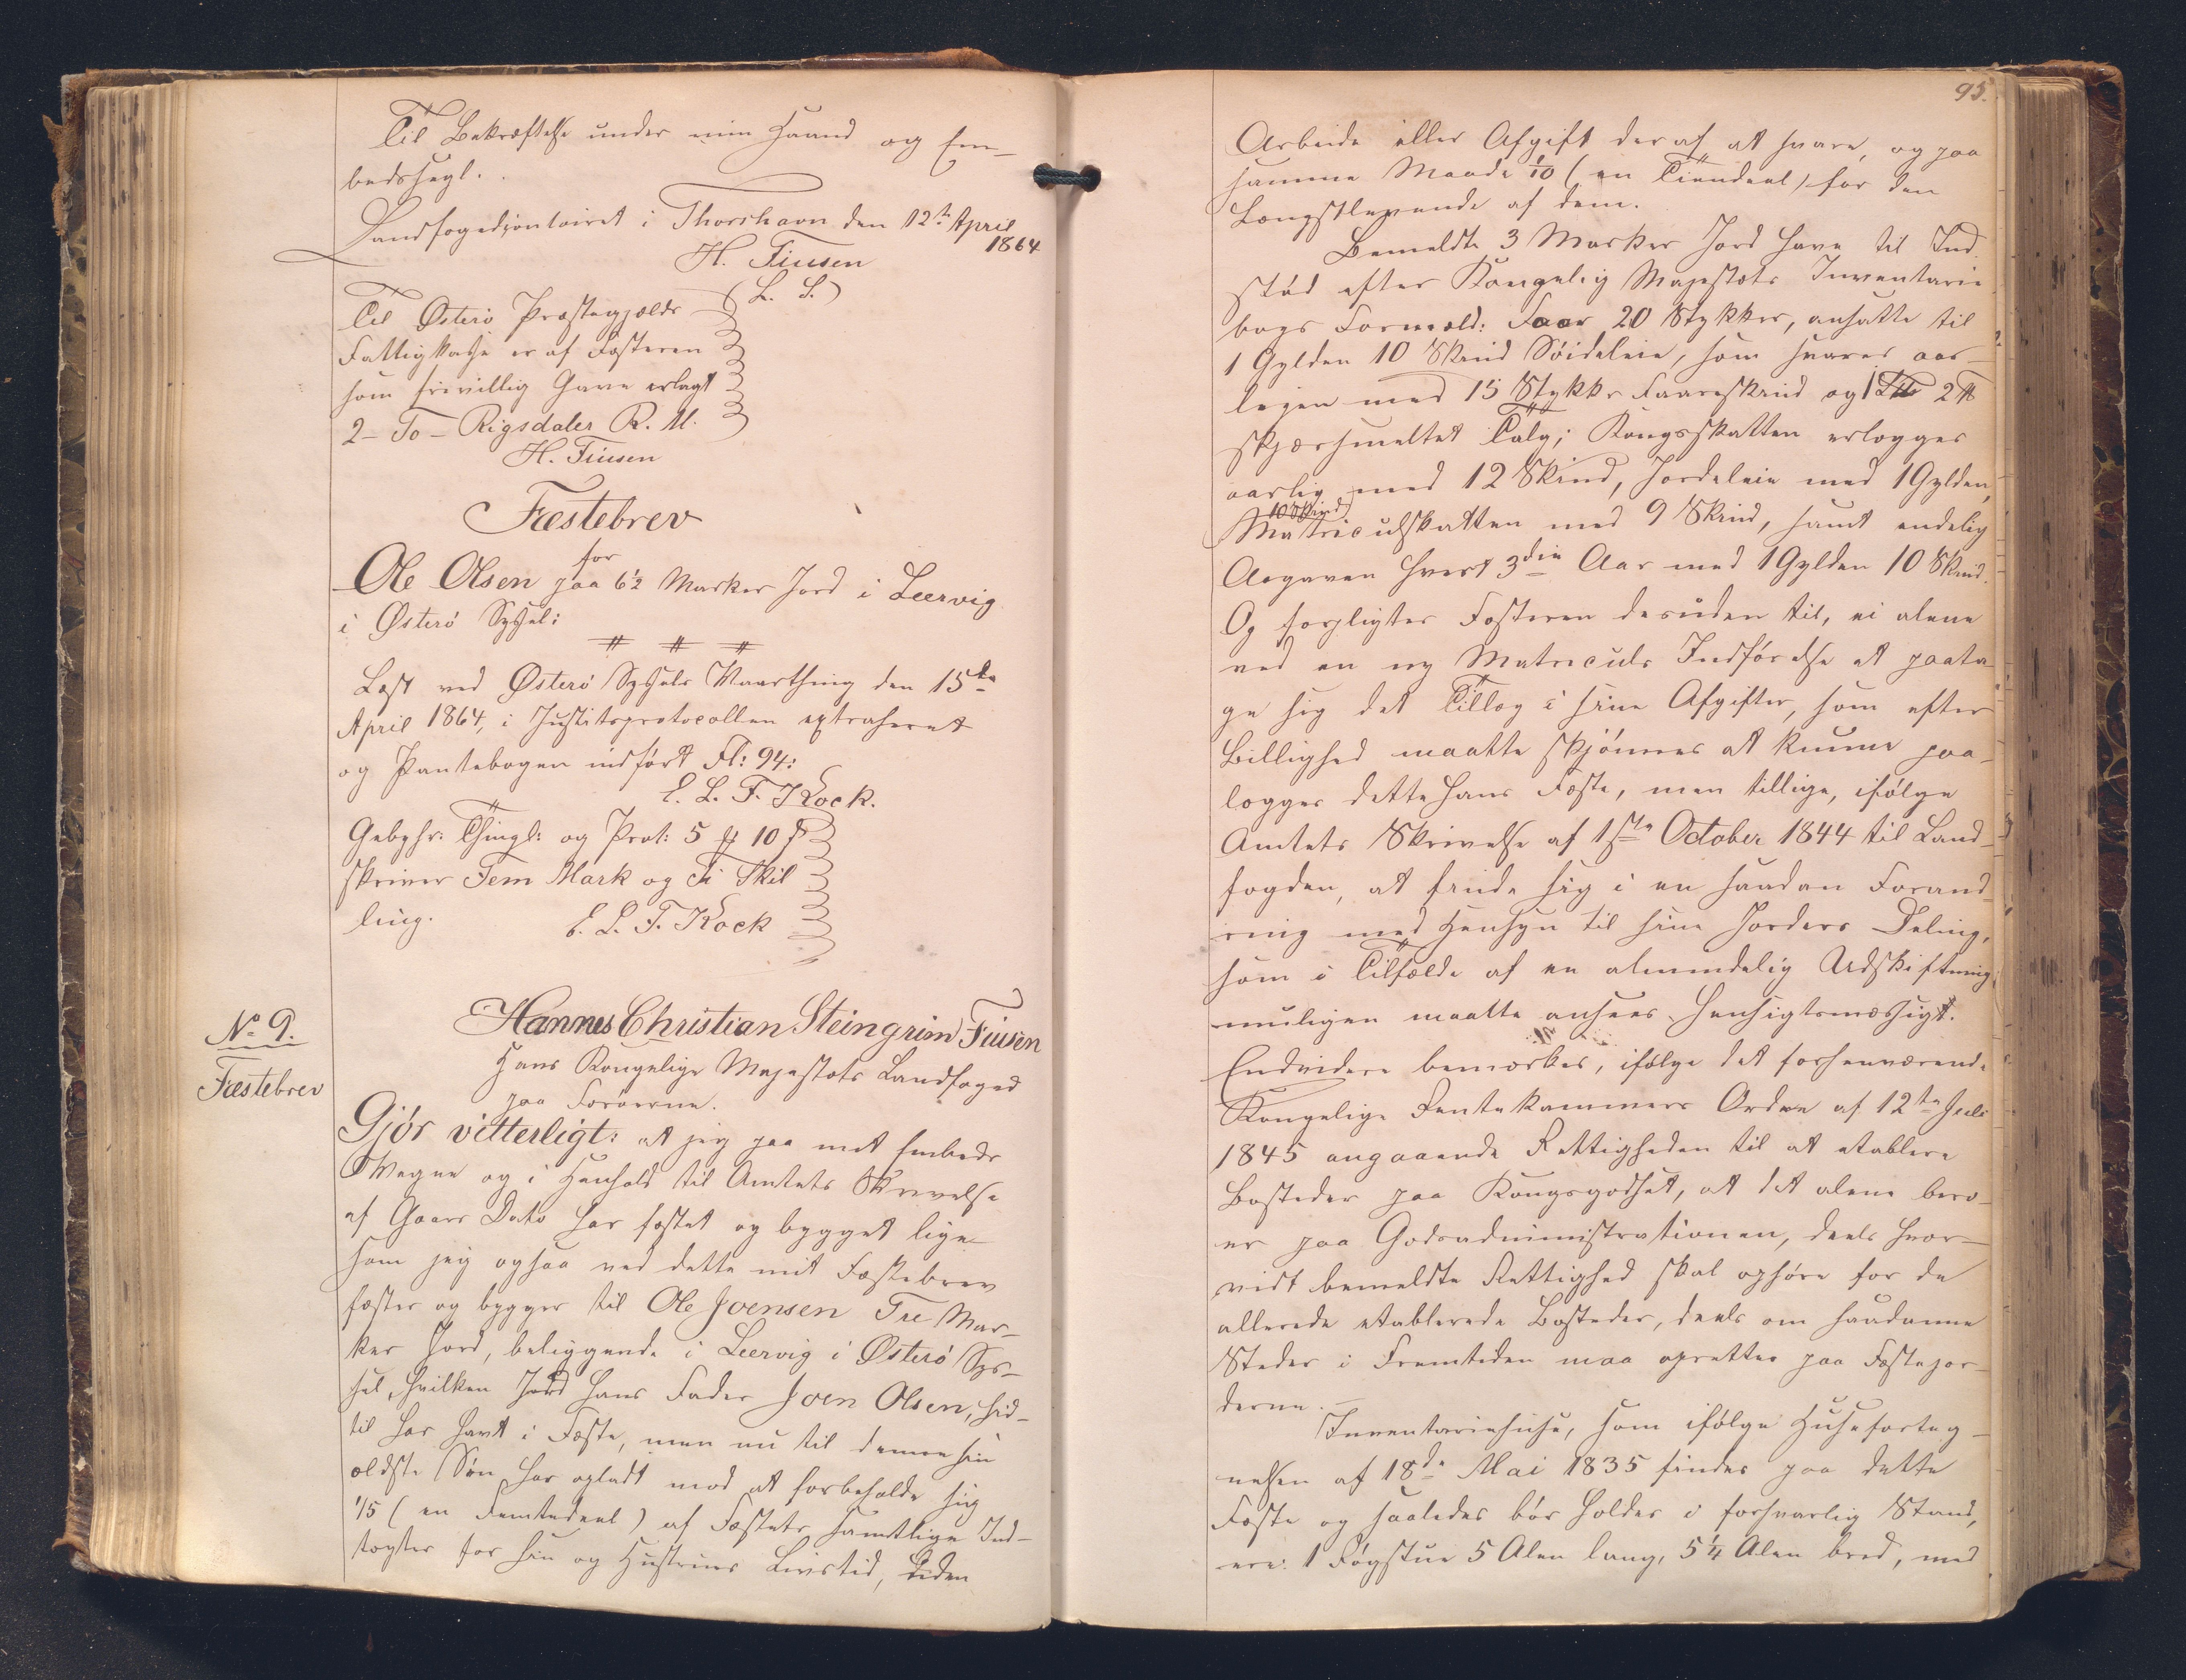 Til Bekræftelse under min Haand og Em-
bedssegl.
Landfogedcontoiret i Thorshavn den 12te April
1864
H. Finsen
(L. S.)
Til Østerö Præstegjelds
Fattigkasse er af Fæsteren
som frivillig Gave erlagt
2 - To - Rigsdaler R. M.
H. Finsen
Fæstebrev
for
Ole Olsen paa 6½ Marker Jord i Leervig
i Østerö Syssel:
Læst ved Østerö Syssels Vaarthing den 15de
April 1864, i Justitsprotocollen extraheret
og Pantebogen indført Fl: 94:
E. L. F. Kock.
Gebyhr: Thingl: og Prot: 5 ℳ 10 ß
skriver Fem Mark og Ti Skil
ling.
E. L. F. Kock
No 9.
Fæstebrev
Hannes Christian Steingrim Finsen
Hans Kongelige Majestæts Landfoged
paa Færøerne.
Gjör vitterligt: at jeg paa mit Embeds
Vegne og i Henhold til Amtets Skrivelse
af Gaars Dato har fæstet og bygget lige
som jeg ogsaa ved dette mit Fæstebrev
fæster og bygger til Ole Joensen Tre Mar-
ker Jord, beliggende i Leervig i Østerö Sys-
sel, hvilken Jord hans Fader Joen Olsen, hid-
til har havt i Fæste, men nu til denne sin
ældste Søn har opladt mod at forbeholde sig
1/5 (en Femtedeel) af Fæstets samtlige Ind-
tægter for sin og Hustrues Livstid, uden
95.
Arbeide eller Afgift deraf at svare, og paa
samme Maade 1/10 (en Tiendeel) for den
Længstlevende af dem.
Bemeldte 3 Marker Jord have til Ind
stød efter Kongelig Majestæts Inventarie
bogs Formeld: Faar 20 Stykker, ansatte til
1 Gylden 10 Skind Søideleie, som svares aar-
ligen med 15 Stykker Faareskind og 1 2 ℔
skjærsmeltet Talg; Kongsskatten erlægges
aarlig med 12 Skind, Jordeleie med 1 Gylden,
10 Skind
Matriculskatten med 9 Skind, samt endelig
Aargaven hvert 3die Aar med 1 Gylden 10 Skind.
Og forpligter Fæsteren desuden til, ei alene
ved en ny Matriculs Indförelse at paata
ge sig det Tillæg i sine Afgifter, som efter
Billighed maatte skjønnes at kunne paa-
lægges dette hans Fæste, men tillige, ifølge
Amtets Skrivelse af 1ste October 1844 til Land-
fogden, at finde sig i en saadan Forand-
ring med Hensyn til sine Jorders Deling,
som i Tilfælde af en almindelig Udskiftning
muligen maatte ansees hensigtsmæssigt.
Endvidere bemærkes, ifølge det forhenværende
Kongelige Rentekammers Ordre af 12te Juli
1845 angaaende Rettigheden til at etablere
Bosteder paa Kongsgodset, at det alene bero-
er paa Godsadministrationen, deels hvor-
vidt bemeldte Rettighed skal ophøre for de
allerede etablerede Bosteder, deels om saadanne
Steder i Fremtiden maa oprettes paa Fæstejor-
derne.
Inventariehuse, som ifølge Huseforteg-
nelsen af 18de Mai 1835 findes paa dette
Fæste og saaledes bør holdes i forsvarlig Stand,
ere: 1 Røgstue 5 Alen lang, 5¼ Alen bred, med